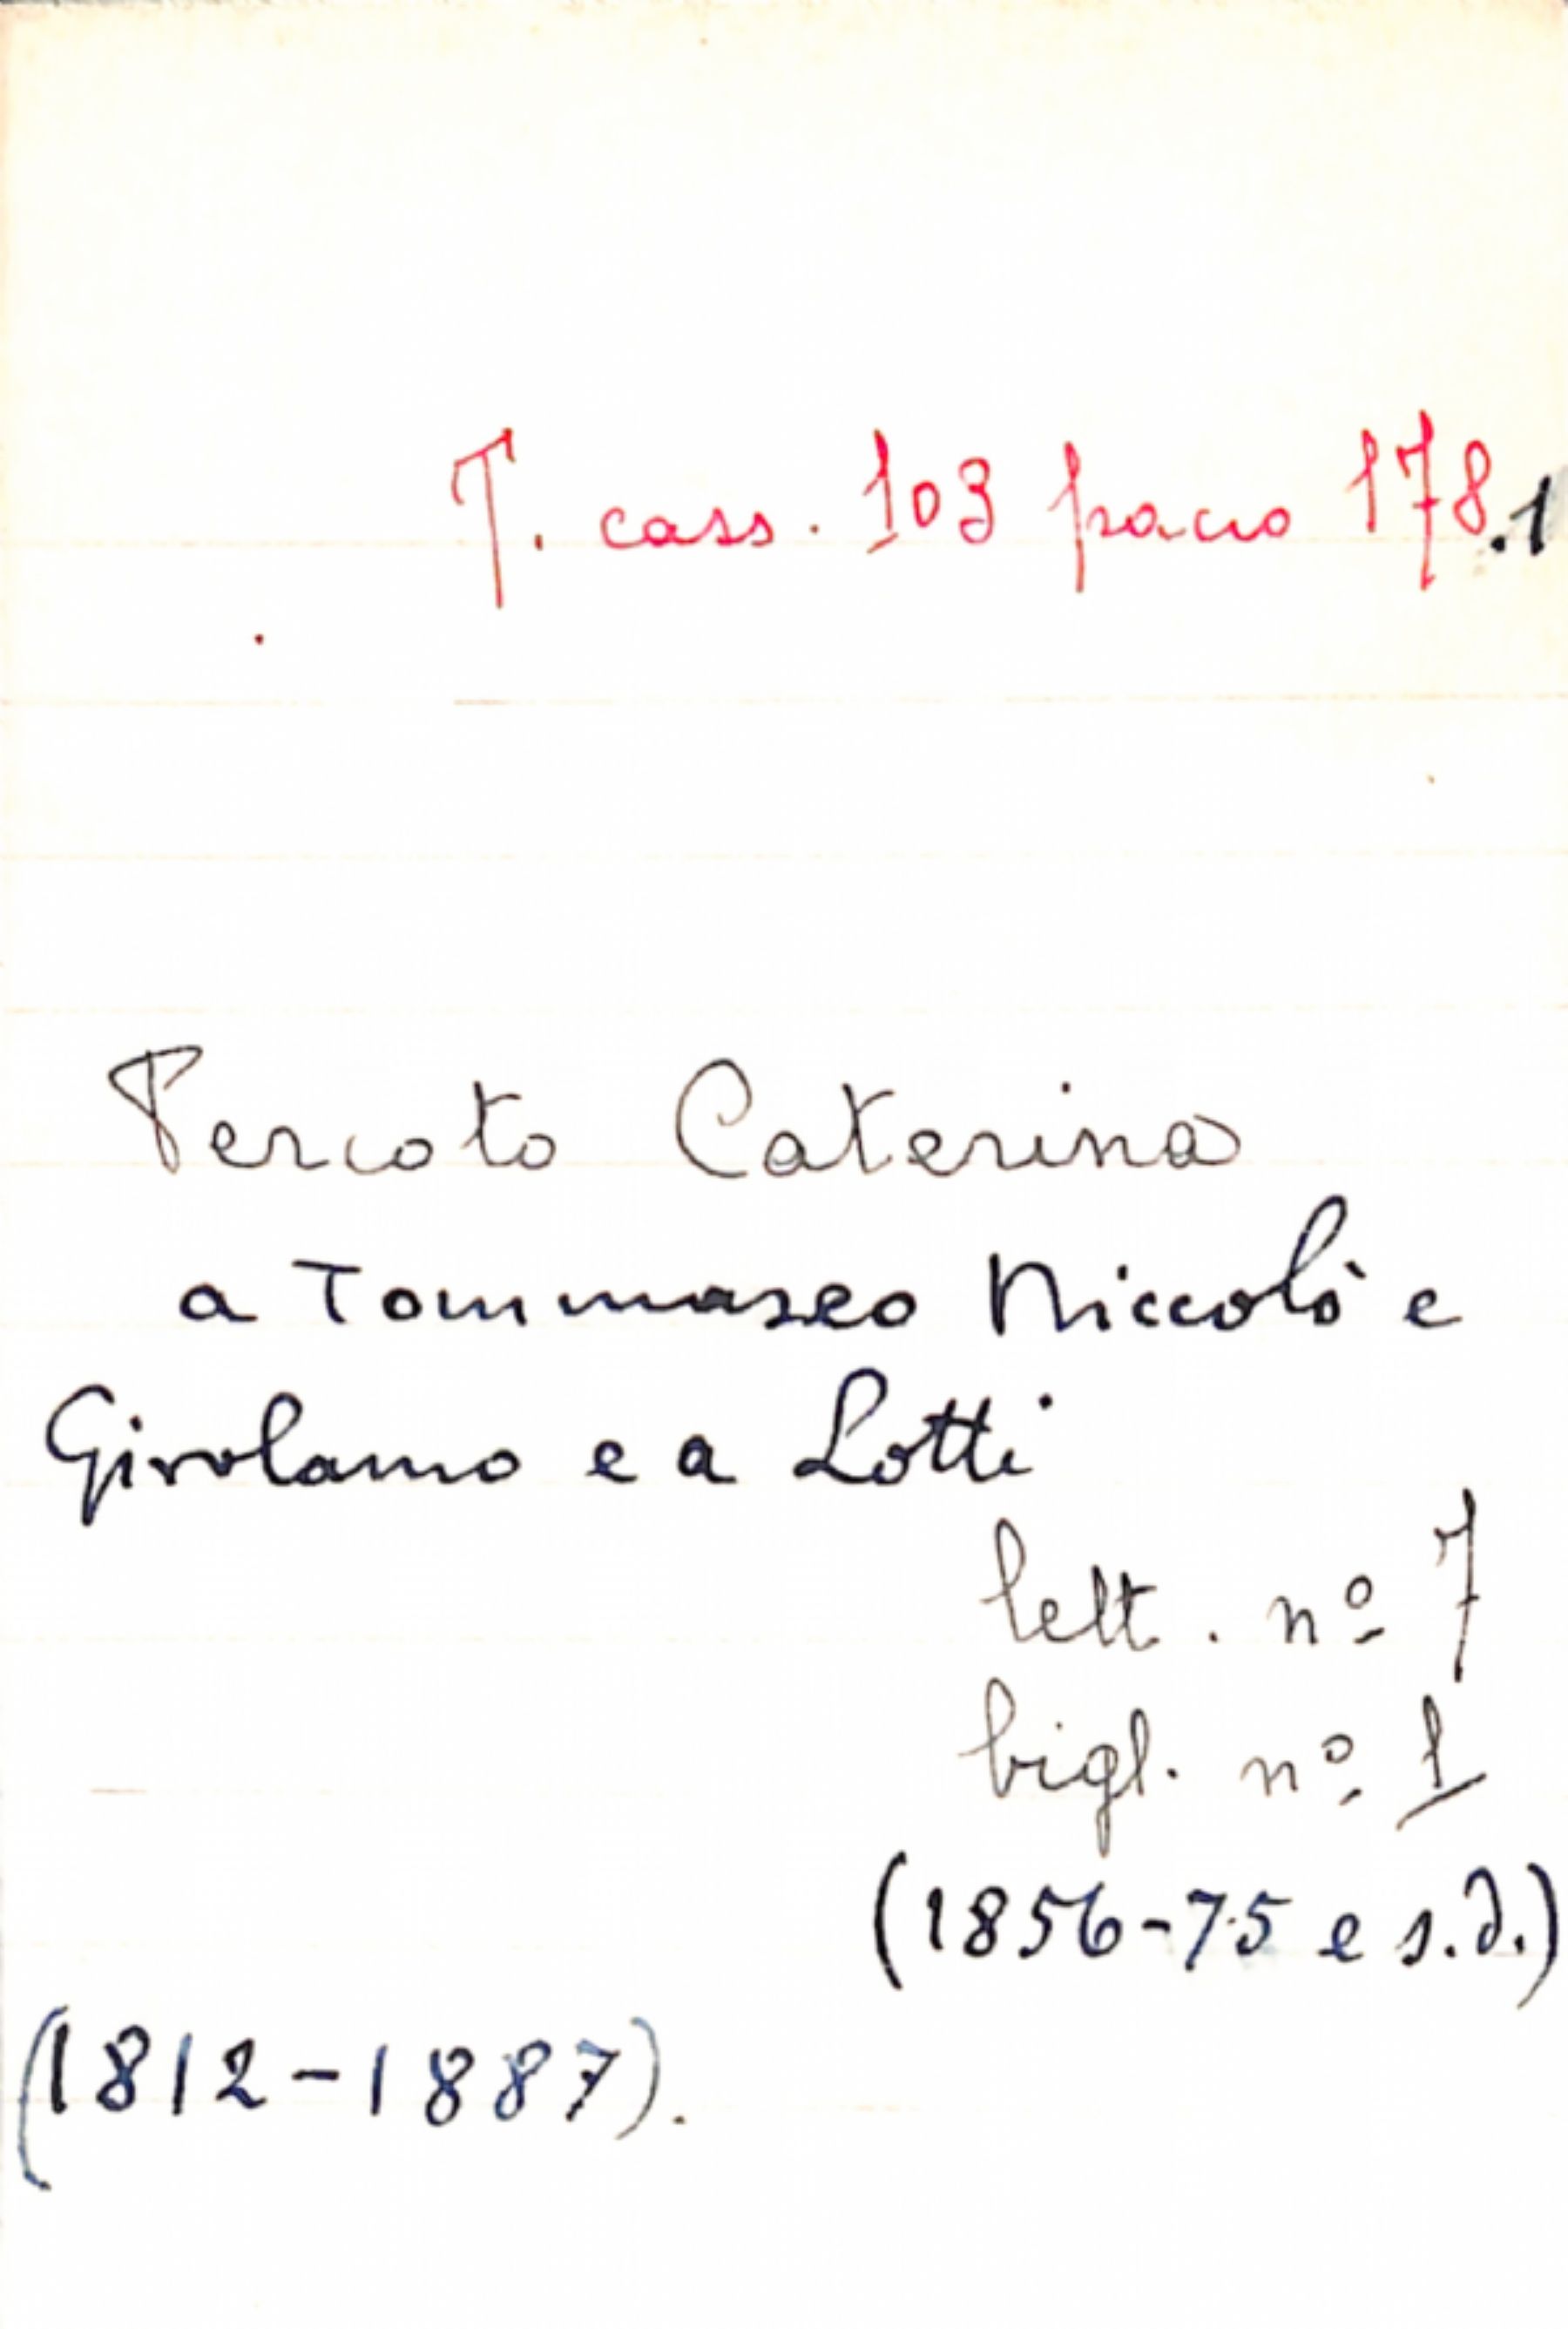 T. cass. 103 pacco 178.1
Percoto Caterina
a Tommaseo Niccolò e
Girolamo e a Lotti
lett. nº 7
bigl. nº 1
(1856-75 e s.d.)
(1812-1887).